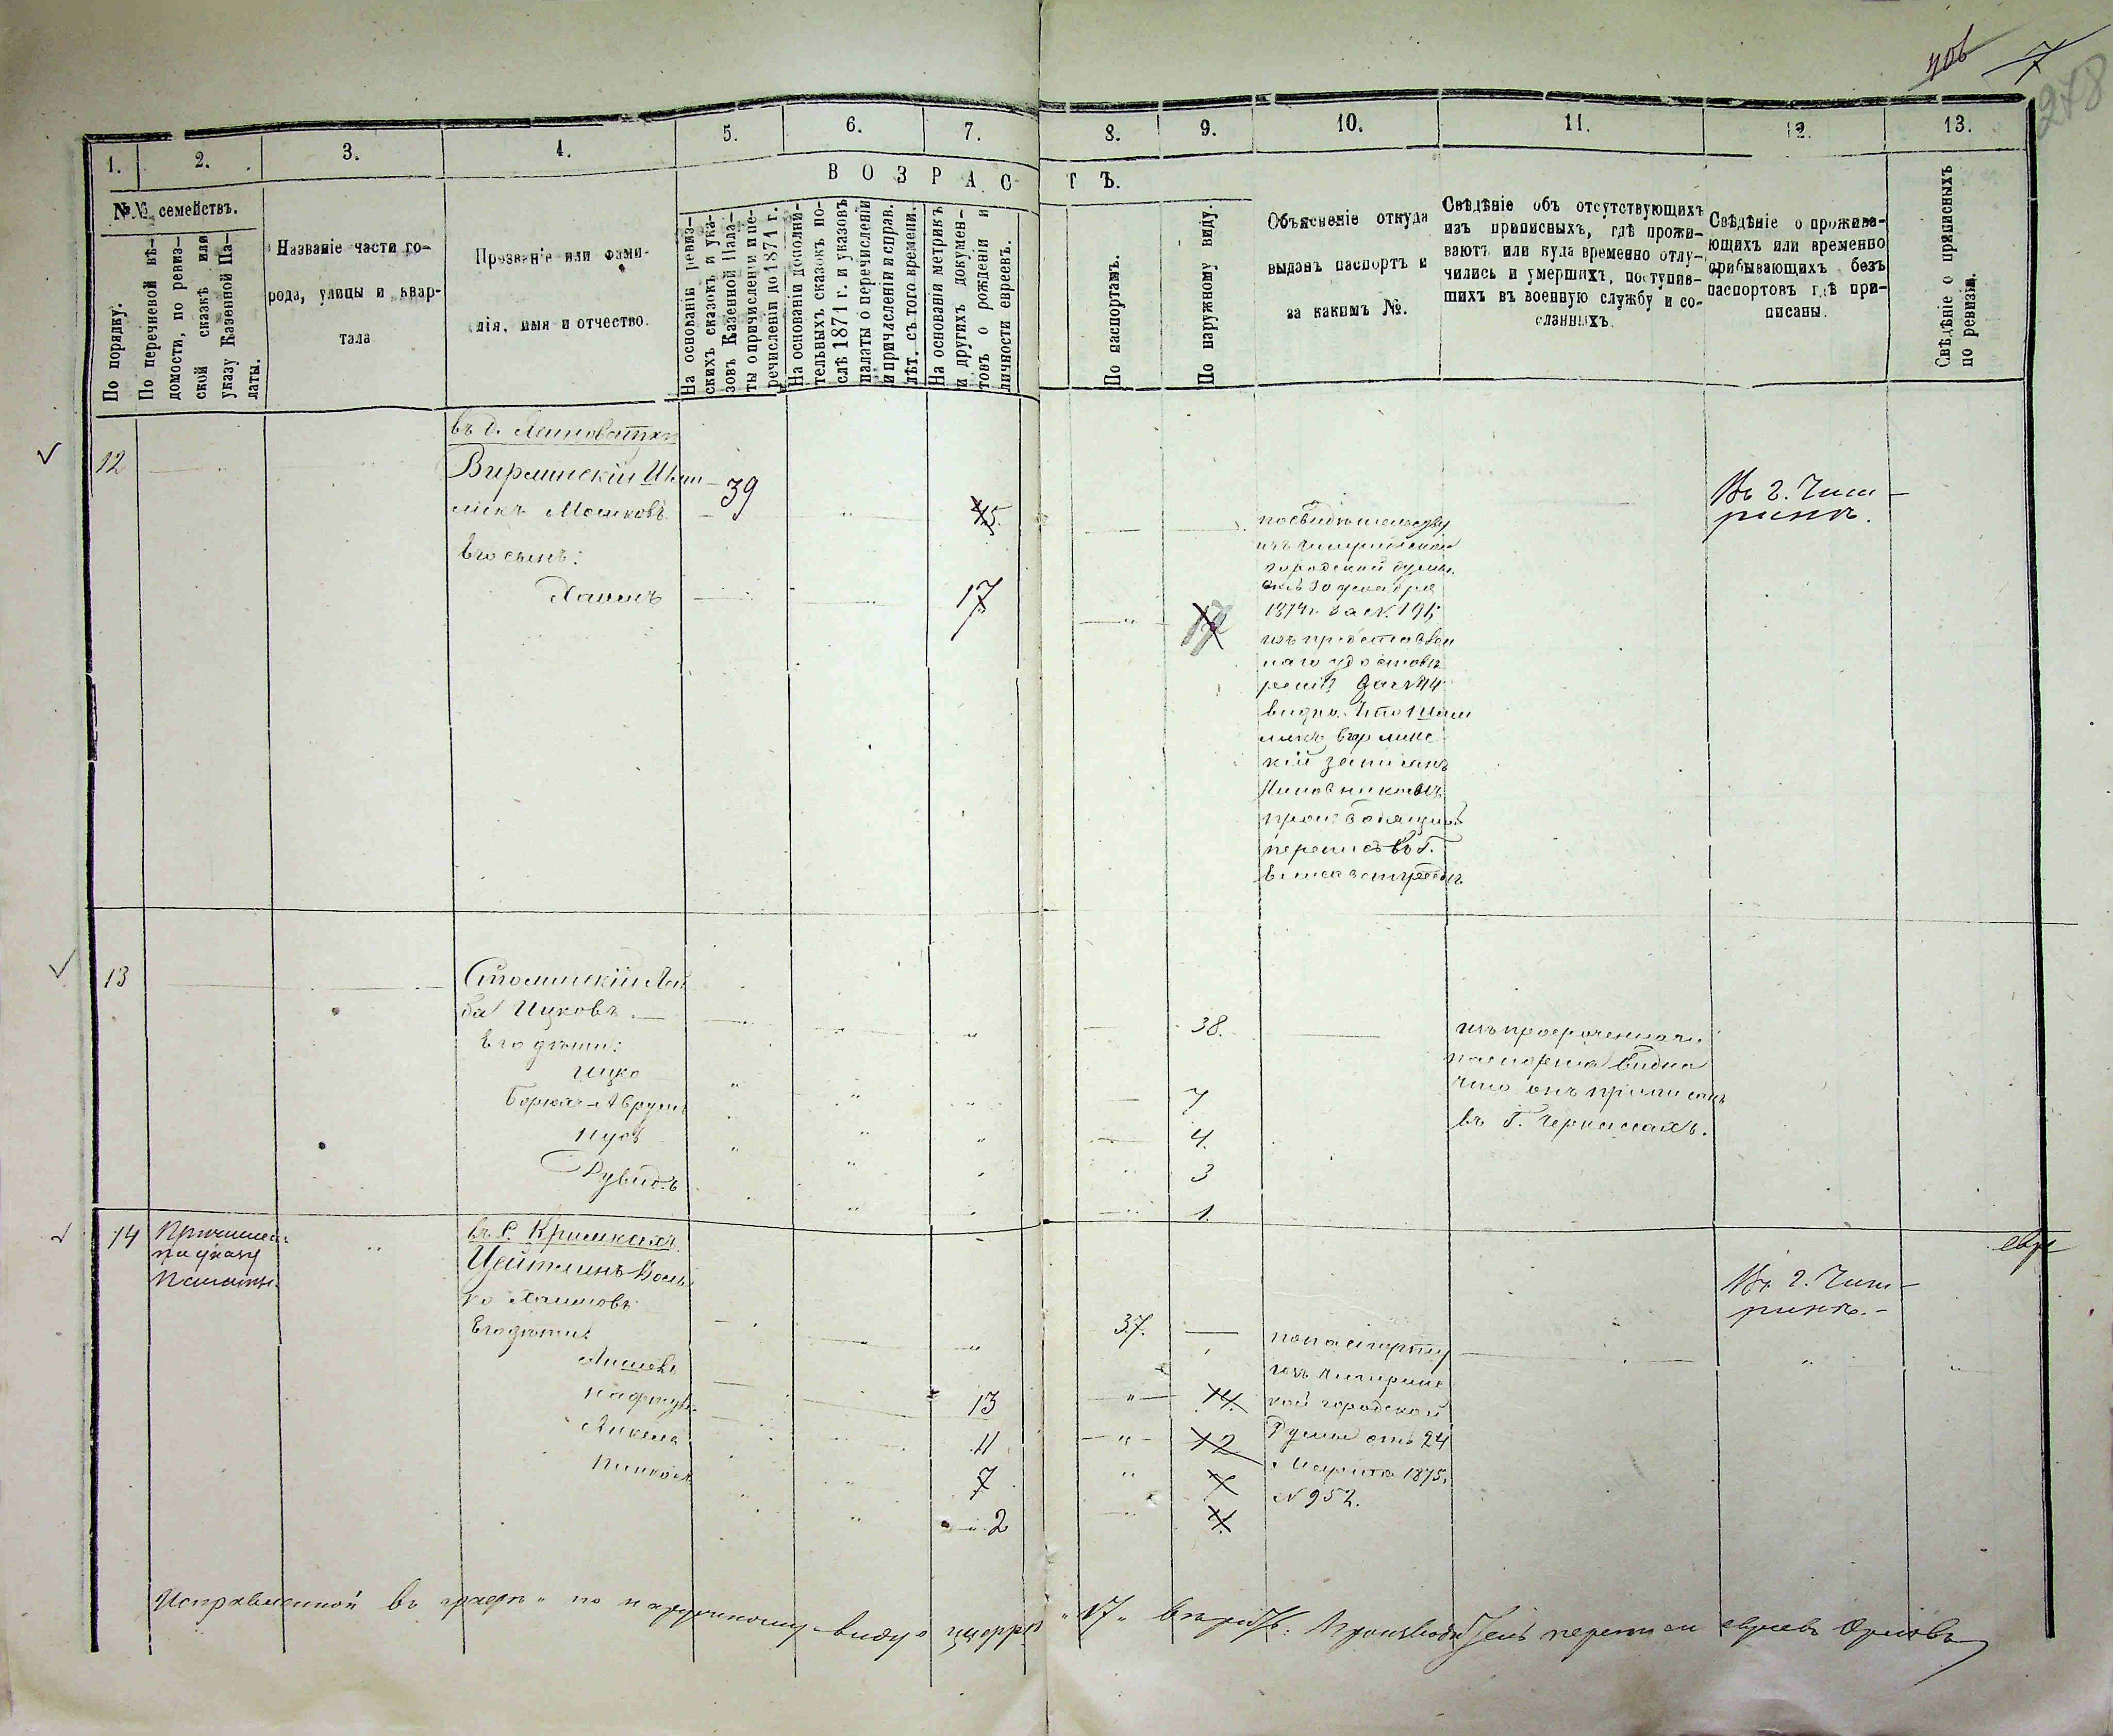 406 7
278
1. 2. 3. 4. 5. 6. 7. 8. 9. 10. 11. 12. 13.
ВОЗРАСТЪ.
№№ семействъ.
По порядку.
По перечневой вѣ-
домости, по ревиз-
ской сказкѣ или
указу Казенной Па-
латы.
Названіе части го-
рода, улицы и квар-
тала
Прозваніе или фами-
лія, имя и отчество.
На основаніи ревиз-
скихъ сказокъ и ука-
зовъ Казенной Пала-
ты о причисленіи и пе-
речисленіи до 1871 г.
На основаніи дополни-
тельныхъ сказокъ по-
слѣ 1871 г. и указовъ
палаты о перечисленіи
и причисленіи и справ.
лѣт. съ того времени.
На основаніи метрикъ
и другихъ докумен-
товъ о рожденіи и
личности евреевъ.
По паспортамъ.
По наружному виду.
Объясненіе откуда
выданъ паспортъ и
за какимъ №.
Свѣдѣніе объ отсутствующихъ
изъ приписныхъ, гдѣ прожи-
ваютъ или куда временно отлу-
чились и умершихъ, поступив-
шихъ въ военную службу и со-
сланныхъ.
Свѣдѣніе о прожива-
ющихъ или временно
прибывающихъ безъ
паспортовъ гдѣ при-
писаны.
Свѣдѣніе о приписныхъ
по ревизіи.
въ д.
12
Вирлинскій Шм
ликъ Мошковъ
39
45
Его сынъ:
Хаимъ
17
17
по свидѣтельству
изъ Чигиринской
городской думы
отъ 30 декабря
1874 г. за № 195
изъ представлен
наго удостовѣ
ренія за № 44
видно что Шм
ликъ Вирлинс
кій записанъ
Чиновникомъ
производящимъ
перепись въ Г.
Елисаветградѣ
Въ г. Чиги-
ринѣ.
13
Столинскій Лей
ба Ицковъ
38.
Его дѣти:
Ицко
7
Борухъ-Аврумъ
4.
3
Рувидъ
1.
изъ просроченнаго
паспорта видно
что онъ приписанъ
въ Г. Черкассахъ.
14
Причислен
по указу
Палаты.
въ С. Кримкахъ
Цейтлинъ Воль
ко Хаимовъ
37.
Его дѣти:
13
14.
Нафтула
11
12
Янкель
7
Пинхос
2
4
по паспорту
изъ Чигиринс
кой городской
Думы отъ 24
Марта 1875 г.
№ 952.
Въ г. Чиги-
ринѣ.
евр
Исправленной въ графѣ „по наружному виду" цифрѣ „17" вѣрить: Производитель переписи евреевъ Орловъ